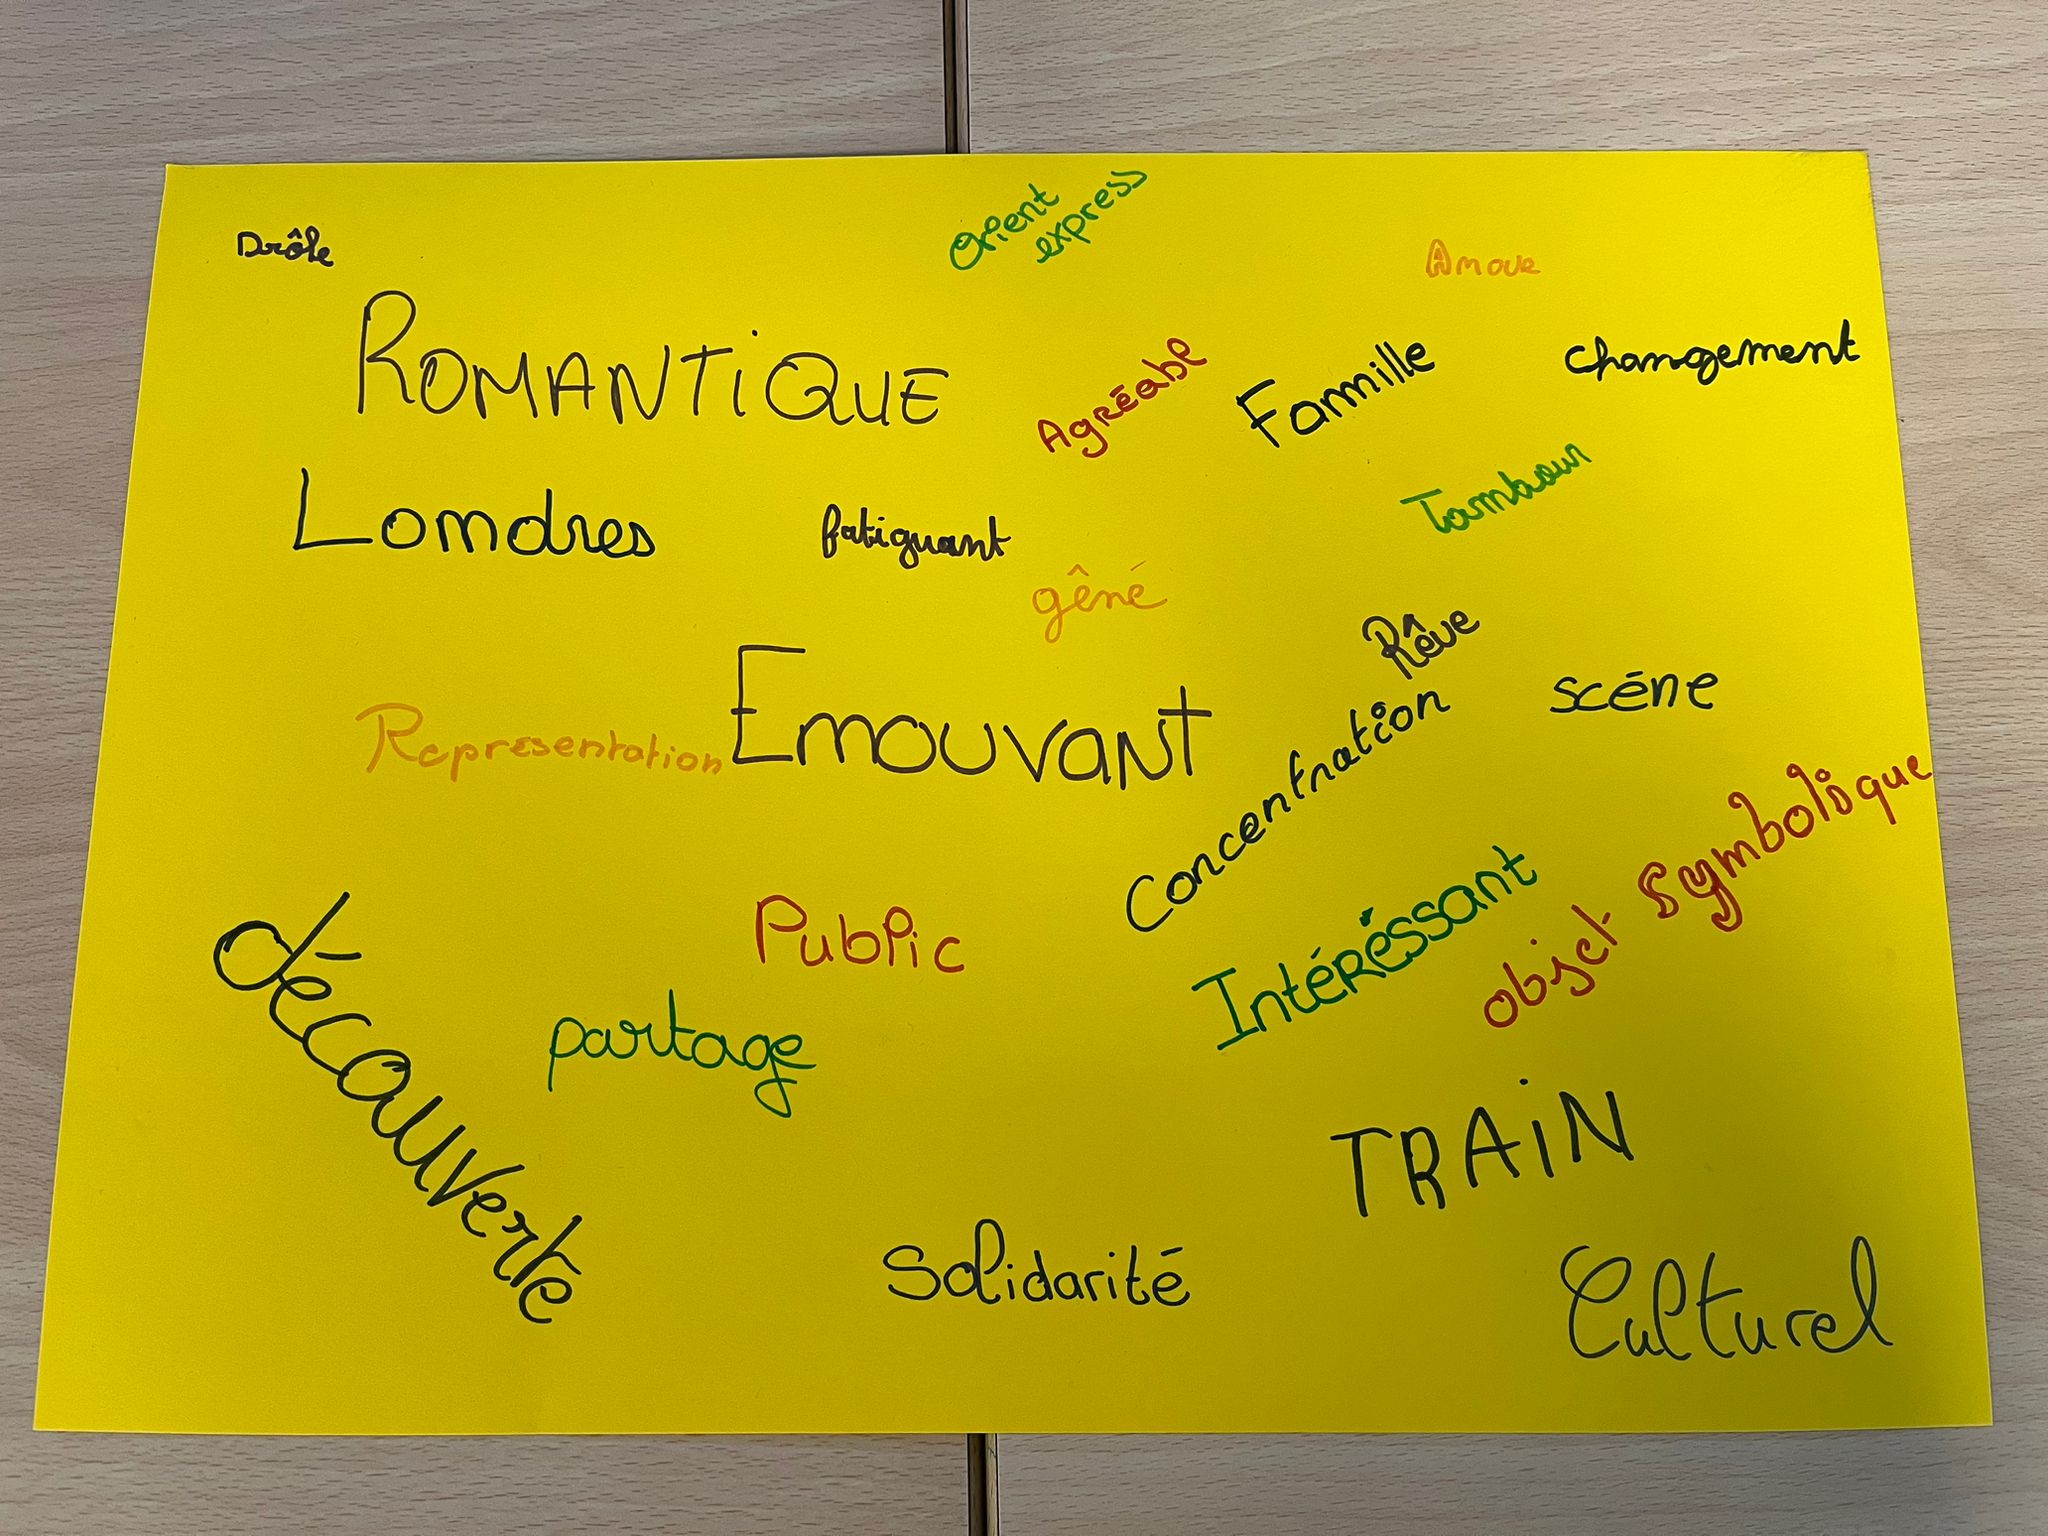 Drôle
Orient
express
Amour
ROMANTiQUE
Agréabl
Famille
changement
Londres
fatiguant
Tambour
gêné
Rêve
Representation
Emouvant
scéne
Concentration
Public
Intéréssant
objet symbolique
découverte
partage
TRAiN
Solidarité
Culturel